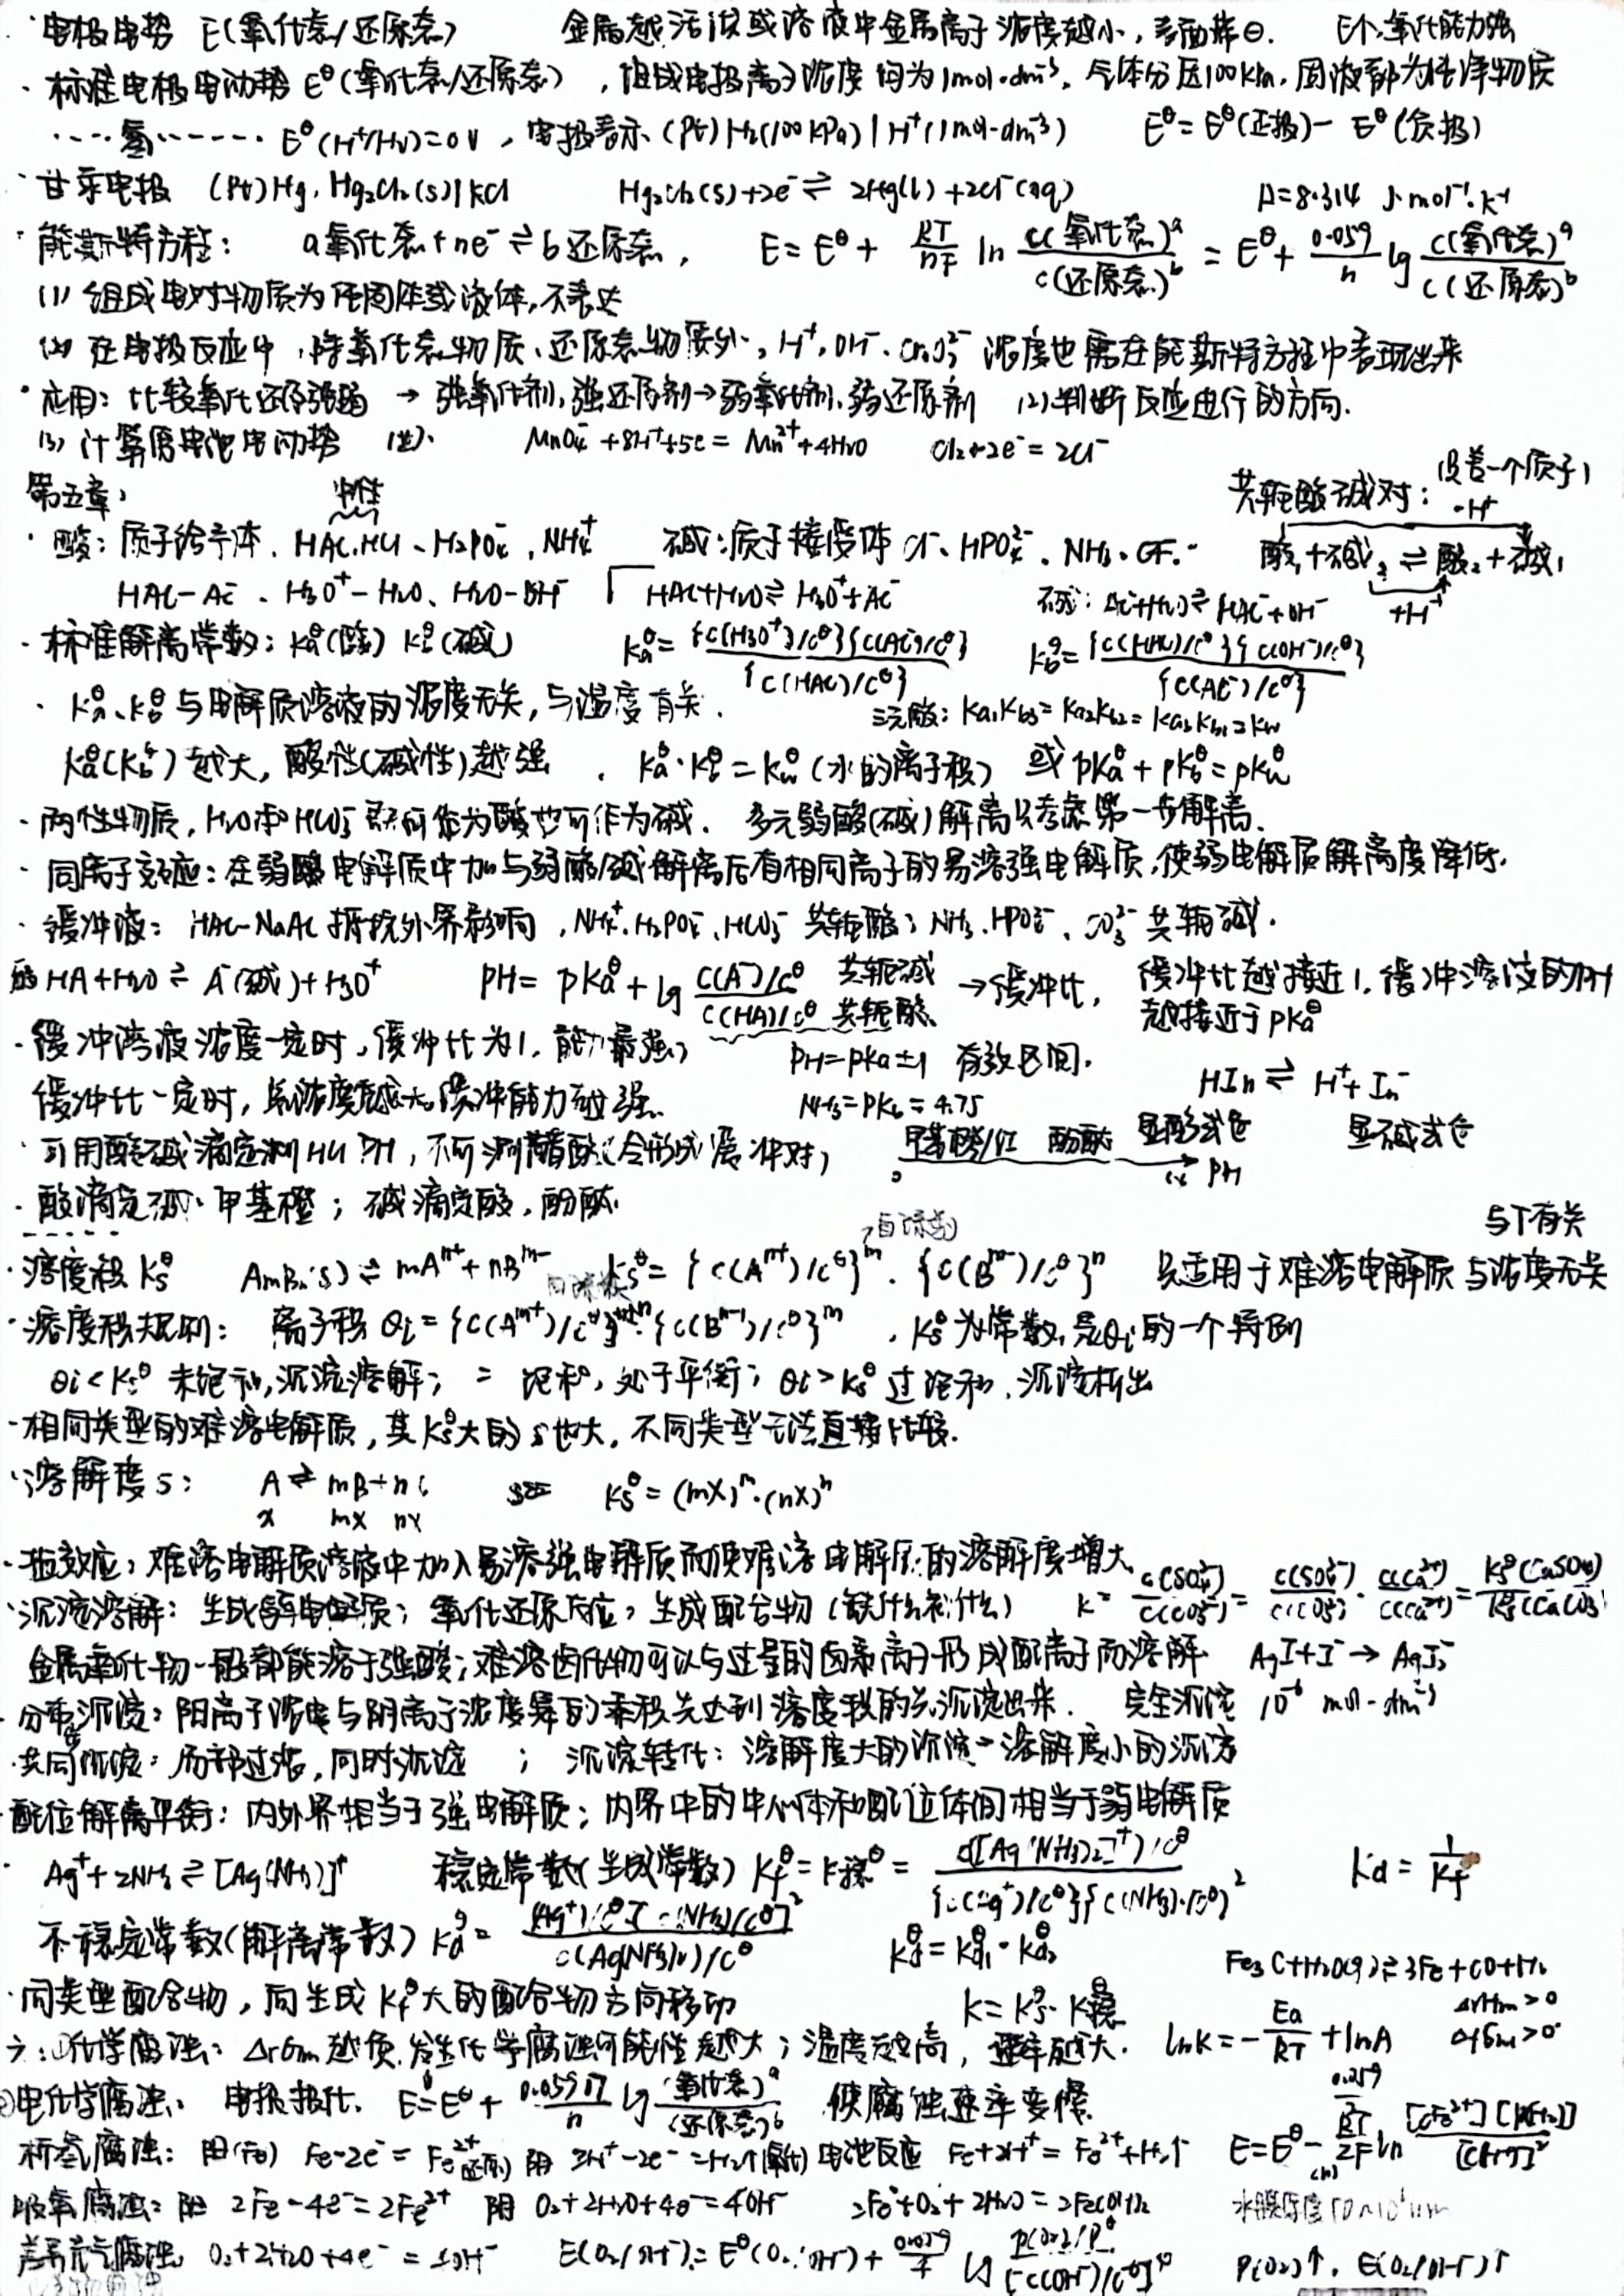 · 电极电势 E(氧化态/还原态) 金属越活泼或溶液中金属离子浓度越小, 表面带⊖. E↑,氧化能力强
· 标准电极电动势 E^θ(氧化态/还原态), 组成电极离子浓度均为1mol·dm⁻³, 气体分压100kPa, 固液都为纯净物质
····氢······ E^θ(H⁺/H₂)=0V, 电极表示 (Pt)H₂(100kPa)|H⁺(1mol·dm⁻³) E^θ=E^θ(正极)-E^θ(负极)
· 甘汞电极 (Pt)Hg,Hg₂Cl₂(s)|KCl Hg₂Cl₂(s)+2e⁻⇌2Hg(l)+2Cl⁻(aq) R=8.314 J·mol⁻¹·K⁻¹
· 能斯特方程: a氧化态+ne⁻⇌b还原态, E=E^θ+ RT/nF ln c(氧化态)^a/c(还原态)^b = E^θ+ 0.059/n lg c(氧化态)^a/c(还原态)^b
(1) 组成电对物质为纯固体或液体, 不表达
(2) 在电极反应中, 除氧化态物质、还原态物质外, H⁺, OH⁻, 浓度也需在能斯特方程中表现出来
· 应用: 比较氧化还原强弱 → 强氧化剂,强还原剂→弱氧化剂,弱还原剂 (2)判断反应进行的方向.
(3) 计算原电池电动势 MnO₄⁻+8H⁺+5e=Mn²⁺+4H₂O Cl₂+2e⁻=2Cl⁻
第五章, 共轭酸碱对: (只差一个质子)
· 酸: 质子给予体, HAc,HCl、H₂PO₄⁻, NH₄⁺ 碱:质子接受体 Cl⁻、HPO₄²⁻、NH₃、 酸₁+碱₂⇌酸₂+碱₁
-H⁺ +H⁺
HAc-Ac⁻、H₃O⁺-H₂O、H₂O-OH⁻ HAc+H₂O⇌H₃O⁺+Ac⁻ 碱: Ac⁻+H₂O⇌HAc+OH⁻
· 标准解离常数: Ka^θ(酸) Kb^θ(碱) Ka^θ={c(H₃O⁺)/c^θ}{c(Ac⁻)/c^θ}/{c(HAc)/c^θ} Kb^θ={c(HAc)/c^θ}{c(OH⁻)/c^θ}/{c(Ac⁻)/c^θ}
· Ka^θ、Kb^θ与电解质溶液的浓度无关, 与温度有关. 三元酸: Ka₁Kb₃=Ka₂Kb₂=Ka₃Kb₁=Kw
Ka^θ(Kb^θ)越大, 酸性(碱性)越强. Ka^θ·Kb^θ=Kw^θ(水的离子积) 或 pKa^θ+pKb^θ=pKw^θ
· 两性物质, H₂O和HCO₃⁻既可作为酸也可作为碱. 多元弱酸(碱)解离只考虑第一步解离.
· 同离子效应: 在弱电解质中加与弱酸/碱解离后有相同离子的易溶强电解质,使弱电解质解离度降低.
· 缓冲液: HAc-NaAc 抵抗外界影响, NH₄⁺,H₂PO₄⁻,HCO₃⁻共轭酸; NH₃,HPO₄²⁻、CO₃²⁻共轭碱.
酸HA+H₂O⇌A⁻(碱)+H₃O⁺ pH=pKa^θ+lg c(A⁻)/c^θ 共轭碱 / c(HA)/c^θ 共轭酸 →缓冲比, 缓冲比越接近1, 缓冲溶液的pH
越接近于pKa^θ
· 缓冲溶液浓度一定时, 缓冲比为1, 能力最强, pH=pKa±1 有效区间.
缓冲比一定时, 总浓度越大,缓冲能力越强. NH₃=pKb=4.75 HIn⇌H⁺+In⁻
· 可用酸碱滴定测HCl pH, 不可测醋酸(会形成缓冲对) 甲基橙/红 酚酞 显酸式色 显碱式色
pH
· 酸滴定碱, 甲基橙; 碱滴定酸, 酚酞.
与T有关
· 溶度积Ks^θ AmBn(s)⇌mAⁿ⁺+nBᵐ⁻ Ks^θ={c(Aⁿ⁺)/c^θ}ᵐ·{c(Bᵐ⁻)/c^θ}ⁿ 只适用于难溶电解质 与浓度无关
· 溶度积规则: 离子积 Qi={c(Aᵐ⁺)/c^θ}·{c(Bⁿ⁻)/c^θ}ᵐ, Ks^θ为常数,是Qi的一个特例
Qi<Ks^θ 未饱和,沉淀溶解; = 饱和, 处于平衡; Qi>Ks^θ过饱和, 沉淀析出
· 相同类型的难溶电解质, 其Ks^θ大的s也大, 不同类型无法直接比较.
· 溶解度s: A⇌mB+nC s= Ks^θ=(mX)ᵐ·(nX)ⁿ
x mx nx
· 盐效应, 难溶电解质溶液中加入易溶强电解质而使难溶电解质的溶解度增大
· 沉淀溶解: 生成弱电解质; 氧化还原反应, 生成配合物(缺什么补什么) K=c(SO₄²⁻)/c(CO₃²⁻)=c(SO₄²⁻)/c(CO₃²⁻)·c(Ca²⁺)/c(Ca²⁺)=Ks^θ(CaSO₄)/Ks^θ(CaCO₃)
金属氧化物一般都能溶于强酸; 难溶卤化物可以与过量的卤素离子形成配离子而溶解 AgI+I⁻→AgI₂⁻
· 分步沉淀: 阳离子浓度与阴离子浓度幂的乘积先达到溶度积的先沉淀出来. 完全沉淀 10⁻⁶ mol·dm⁻³
· 共同沉淀: 局部过浓, 同时沉淀 ; 沉淀转化: 溶解度大的沉淀→溶解度小的沉淀
· 配位解离平衡: 内外界相当于强电解质; 内界中的中心体和配位体间相当于弱电解质
· Ag⁺+2NH₃⇌[Ag(NH₃)]⁺ 稳定常数(生成常数) Kf^θ=K稳^θ=c([Ag(NH₃)₂]⁺)/c^θ/{c(Ag⁺)/c^θ}{c(NH₃)/c^θ}² Kd=1/Kf
不稳定常数(解离常数) Kd^θ=(Ag⁺)/c^θ[c(NH₃)/c^θ]²/c(Ag(NH₃)₂)/c^θ Kd^θ=Kd₁^θ·Kd₂^θ Fe₃C+H₂O(g)⇌3Fe+CO+H₂
· 同类型配合物, 向生成Kf^θ大的配合物方向移动 K=Ks^θ·K稳^θ ΔrHm>0
六: ①化学腐蚀: ΔrGm越负,发生化学腐蚀可能性越大; 温度越高, 速率越大. lnK=-Ea/RT+lnA ΔrSm>0
②电化学腐蚀: 电极极化. E=E^θ+ 0.05917/n lg (氧化态)^a/(还原态)^b 使腐蚀速率变慢.
析氢腐蚀: 阳(Fe) Fe-2e⁻=Fe²⁺ 阴 2H⁺-2e⁻=H₂↑ 电池反应 Fe+2H⁺=Fe²⁺+H₂↑ E=E^θ-RT/2F ln [cFe²⁺][pH₂]/[cH⁺]²
吸氧腐蚀: 阳 2Fe-4e⁻=2Fe²⁺ 阴 O₂+2H₂O+4e⁻=4OH⁻ 2Fe+O₂+2H₂O=2Fe(OH)₂ 水膜厚度
差异充气腐蚀: O₂+2H₂O+4e⁻=4OH⁻ E(O₂/OH⁻)=E^θ(O₂/OH⁻)+ 0.059/4 lg p(O₂)/p^θ/[c(OH⁻)/c^θ]⁴ p(O₂)↑, E(O₂/OH⁻)↑